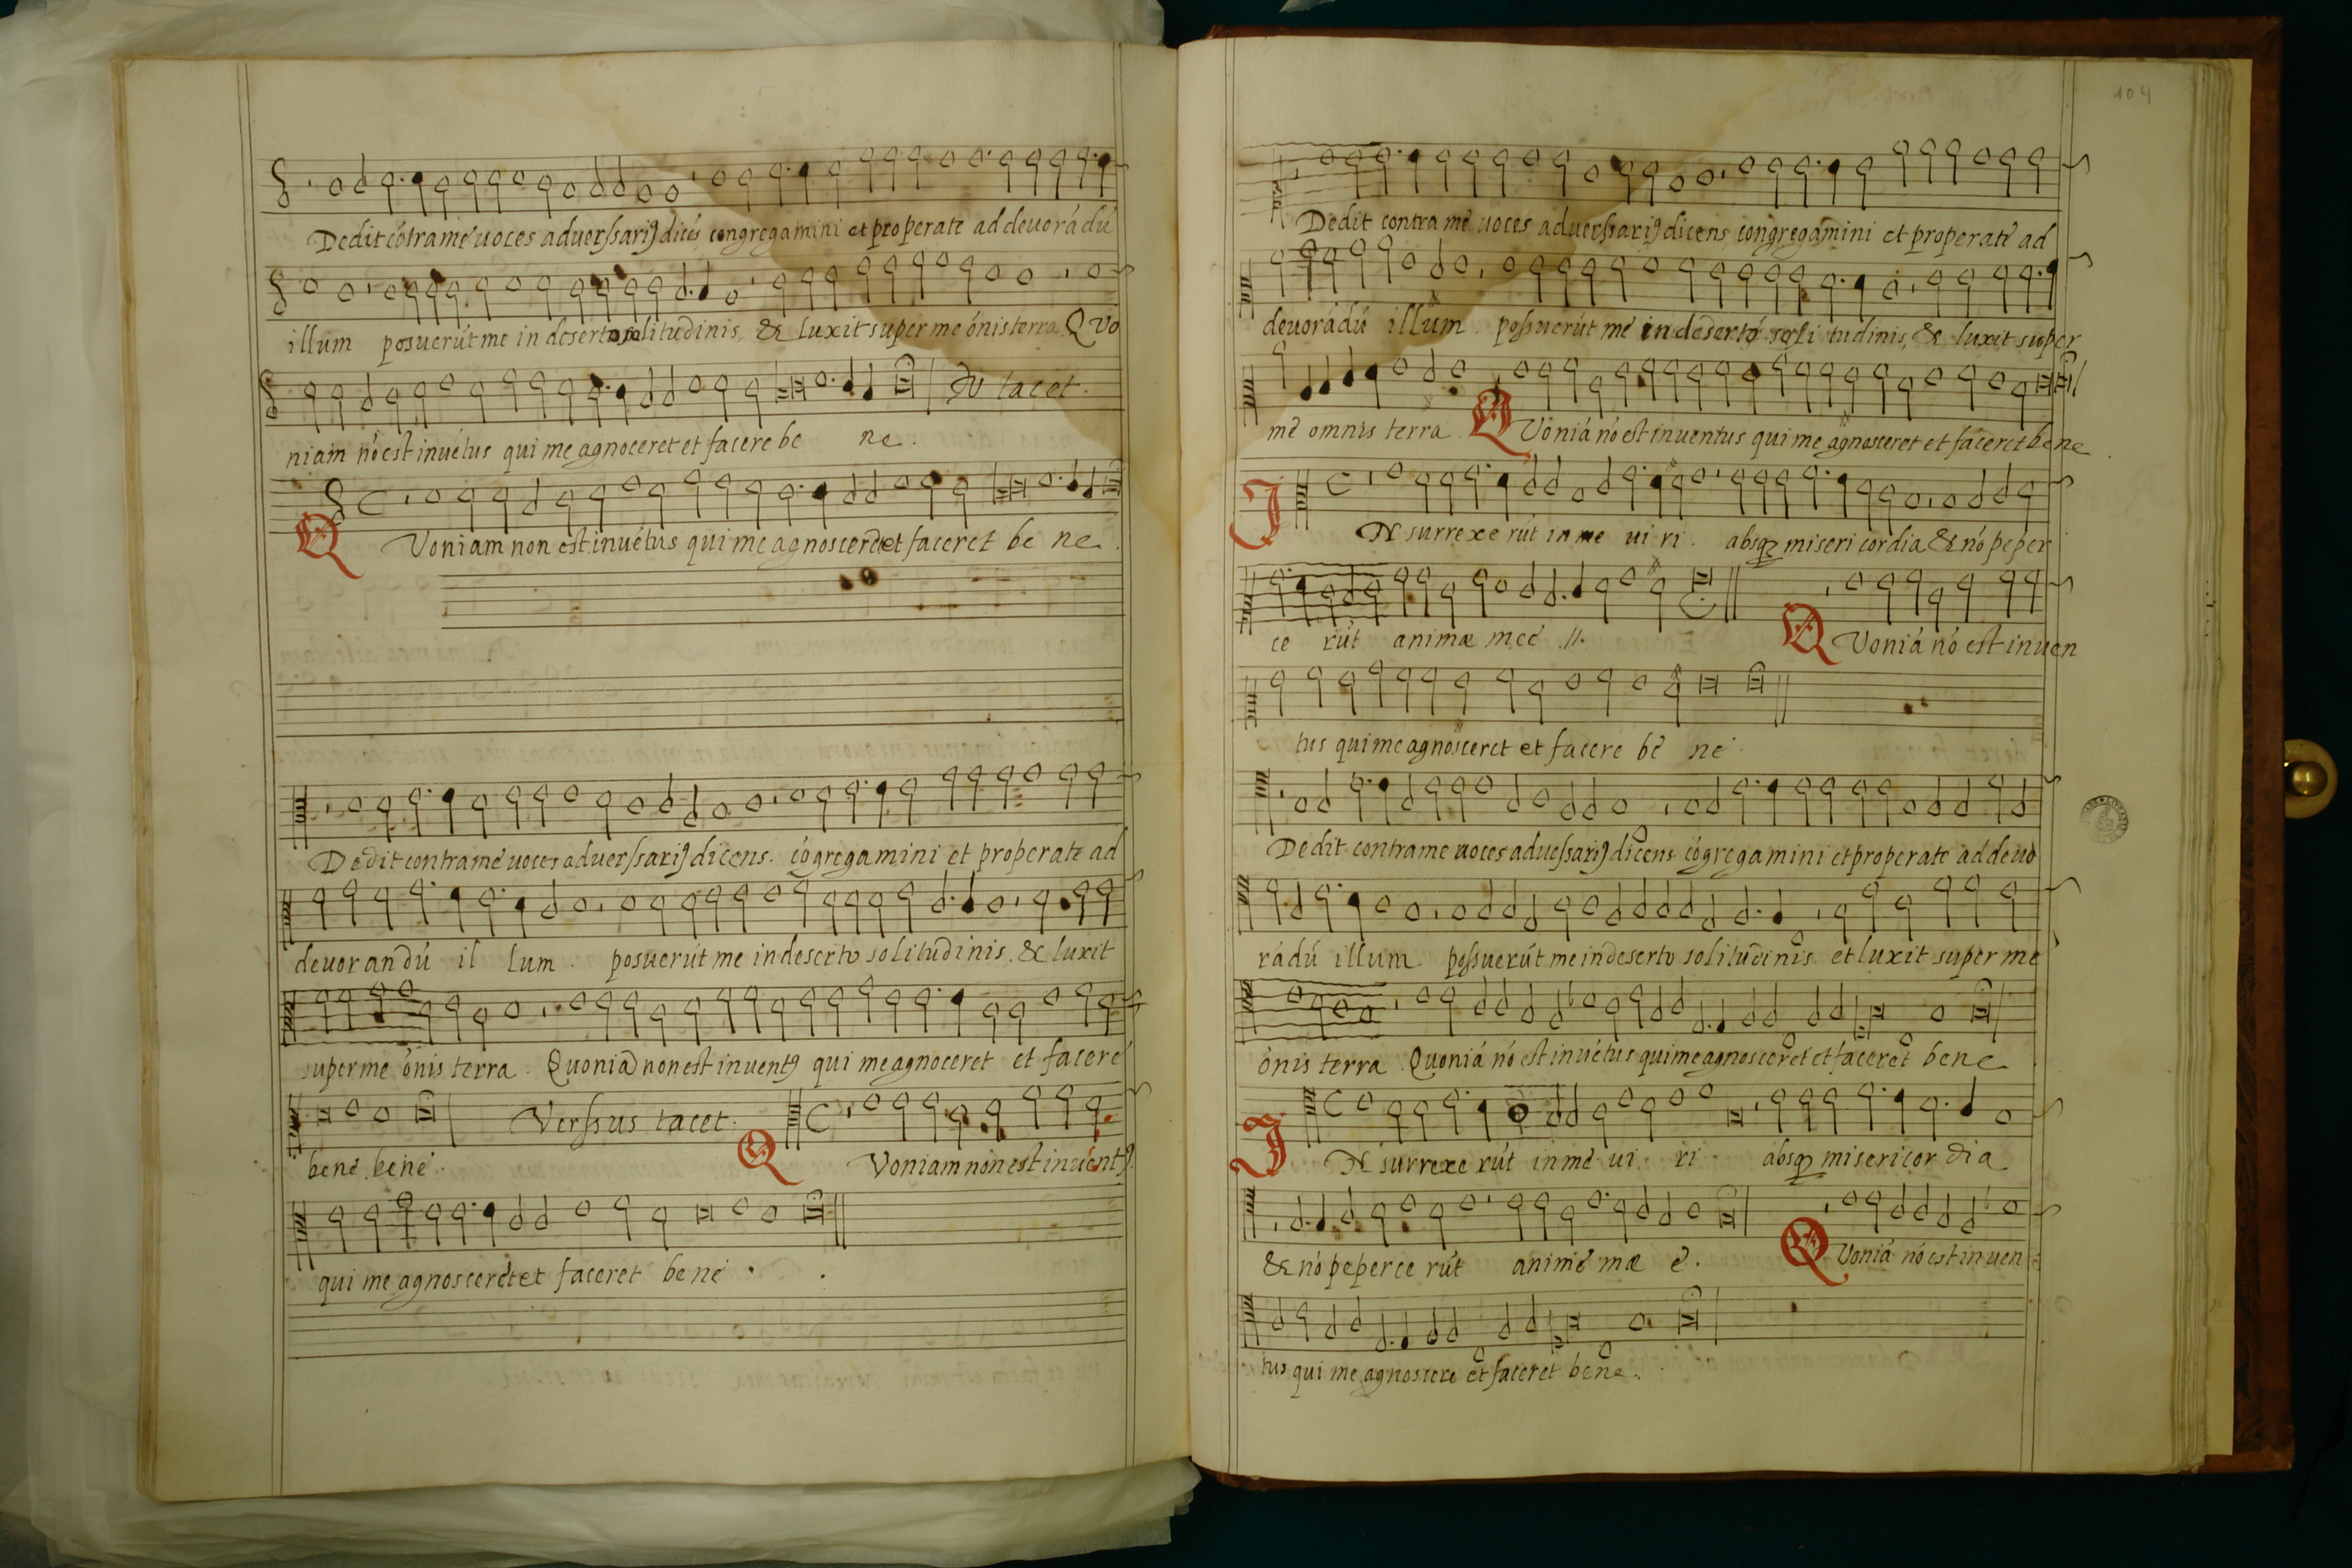 Dedit cótra me uoces aduerſsariꝰ dicés congregamini et properate ad deuorádú
illum posuerút me in deserto solitudinis, & luxit super me ónis terra. Q vo
niam nó est inuétus qui me agnoceret et facere be ne.
tacet.
Q Voniam non est inuétus qui me agnosceret et faceret be ne.
Dedit contra me uoces aduerſsariꝰ dicens. cógregamini et properate ad
deuorandú il lum. posuerút me in deserto solitudinis. & luxit
super me ónis terra. Quoniá non est inuentꝰ qui me agnoceret et facere
bene. bene.
Verſsus tacet.
Q Voniam non est inuéntꝰ.
qui me agnosceret et faceret bene.
104
Dedit contra me uoces aduerſsariꝰ dicens congregamini et properate ad
deuorádú illum. poſsuerút me in deserto soli tudinis, & luxit super
me omnis terra. Q Voniá nó est inuentus qui me agnosceret et faceret bene.
I N surrexe rút in me ui ri. absqꝫ miseri cordia & nó peper
ce rút animæ meé .//.
Q Voniá nó est inuen
tus qui me agnosceret et facere be ne.
Dedit contra me uoces adueſsariꝰ dicens cógregamini et properate ad deuo
rádú illum. poſsuerút me in deserto solitudinis. et luxit super me
ónis terra. Quoniá nó est inuétus qui me agnosceret et faceret bene.
I N surrexe rút in me ui ri absqꝫ misericor dia
& nó peperce rút anime mæ e.
Q Voniá nó est inuen
tus qui me agnoscere et faceret bene.